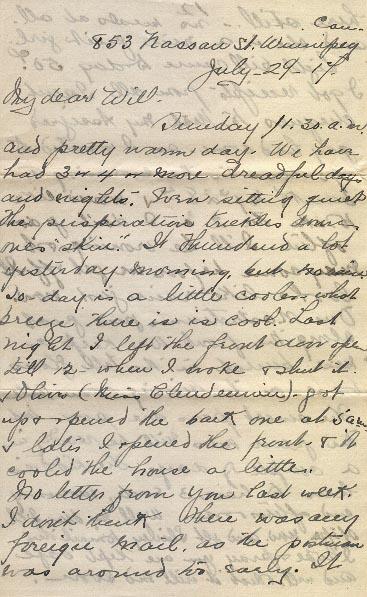 Can.
853 Nassau St. Winnipeg
July-29-17.
My dear Will.
Sunday 11.30.a.m.
and pretty warm day. We have
had 3 or 4 or more dreadful days
and nights. Even sitting quiet
the perspiration trickles down
one's skin. It thundered a lot
yesterday morning, but no rain
To day is a little cooler what
breeze there is is cool. Last
night I left the front door open
till 12 when I woke & shut it.
& Olive (Miss Clendennin) got
up & opened the back one at 5 am
& later I opened the front & it
cooled the house a little..
No letter from you last week.
I don't think there was any
foreign mail, as the postman
was around so early. It